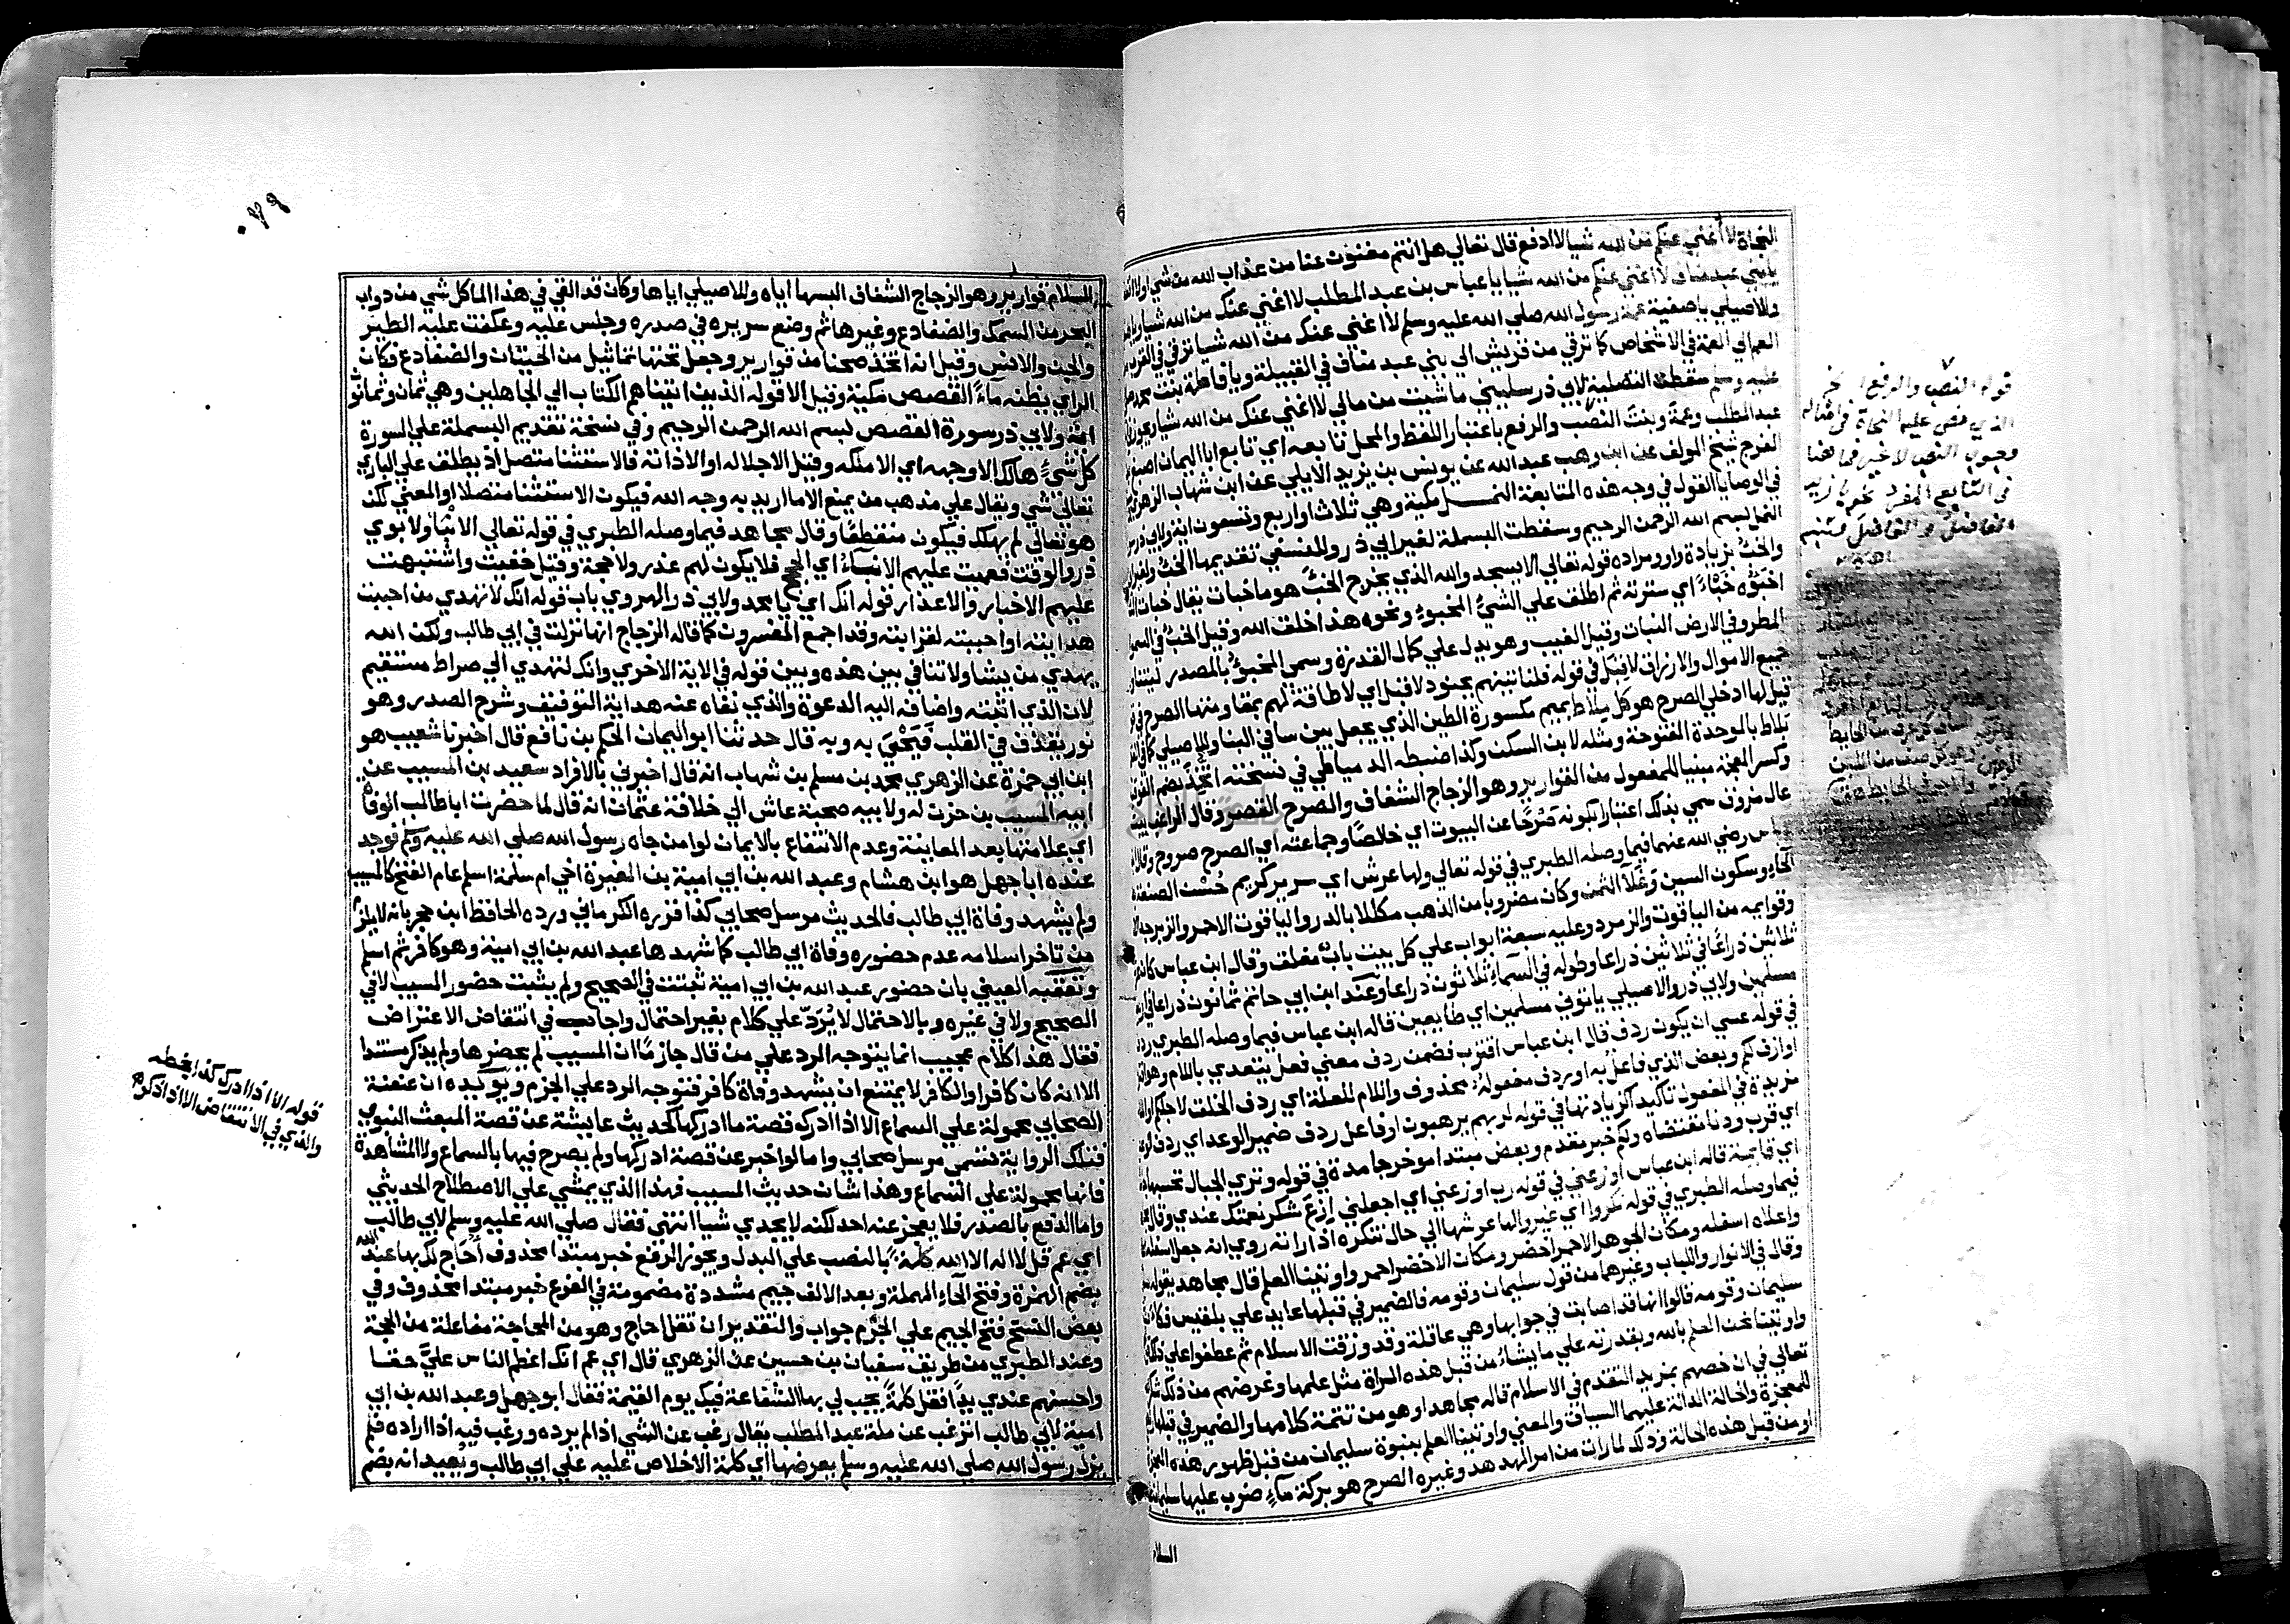 النجاة لا أغني عنكم من الله شيا لا ادفع قال تعالي هل انتم مغنون عنا من عذاب الله من شي
يا بني عبد مناف لا اغني عنكم من الله شيا يا عباس بن عبد المطلب لا اغني عنك من الله شيا
وللاصيلي يا صفية عمة رسول الله صلي الله عليه وسلم لا اغني عنك من الله شيا ترقي في القرب
العم الي العمة في الاشخاص كما ترقي من قريش الي بني عبد مناف في القبيلة ويا فاطمة بنت محمد
عليه وسلم سقطت التصلية لابي ذر سليني ما شيت من مالي لا اغني عنك من الله شيا
عبد المطلب وعمة وبنت النصب والرفع باعتبار اللفظ والمحل تابعه اي تابع ابا اليمان اصبغ
الفرج شيخ المولف عن ابن وهب عبد الله عن يونس بن يزيد الايلي عن ابن شهاب الزهري
في الوصايا القول في وجه هذه المتابعة النمل مكية وهي ثلاث او اربع وتسعون اية ولابي ذر
النمل بسم الله الرحمن الرحيم وسقطت البسملة لغير ابي ذر وللنسفي تقديمها الخبْ
والخبْ بزيادة واو ومراده قوله تعالي الا يسجدوا لله الذي يخرج الخبْ هو ما خبات يقال خبات
اخبؤه خبْاءً اي سترته ثم اطلق علي الشيْ المخبوءِ ونحوه هذا خلق الله وقيل الخبْ في السموات
المطر وفي الارض النبات وقيل الغيب وهو يدل علي كمال القدرة وسمي المخبوْ بالمصدر ليتناول
جميع الاموال والارزاق لا قبل في قوله فلناتينهم بجنود لا قبل اي لا طاقة لهم بمقاومتها الصرح في
قيل لها ادخلي الصرح هو كل ملاط بميم مكسورة الطين الذي يجعل بين سافي البنا وللاصيلي
بلاط بالموحدة المفتوحة ومثله لابن السكن وكذا ضبطه الدمياطي في نسخته اتخذ بضم الفوقية
وكسر المعجمة مبنيا للمفعول من القوارير وهو الزجاج الشفاف والصرح القصر وقال الراغب بيت
عال مزوق سمي بذلك اعتبارا بكونه صَرْحًا عن البيوت اي خالصًا وجماعته اي الصرح صروح وقال
عباس رضي الله عنهما فيما وصله الطبري في قوله تعالي ولها عرش اي سرير كريم حُسْن الصنعة
الحاءِ وسكون السين وغلا الثمن وكان مضروبا من الذهب مكللا بالدر والياقوت الاحمر والزبرجد
وقوايمه من الياقوت والزمرد وعليه سبعة ابواب علي كل بيت بابٌ مغلق وقال ابن عباس كان
ثلاثين ذراعًا في ثلاثين ذراعا وطوله في السماءِ ثلاثون ذراعا وعند ابن ابي حاتم ثمانون ذراعا في
مسلمين ولابي ذر والاصيلي ياتوني مسلمين اي طايعين قاله ابن عباس فيما وصله الطبري ردف
في قوله عسي ان يكون ردف قال ابن عباس اقترب فضمن ردف معني فعل يتعدي باللام وهو
او ازف لكم وبعض الذي فاعل به او ردف مفعوله محذوف واللام للعلة اي ردف الخلق لاجلكم او اللام
مزيدة في المفعول تاكيدا كزيادتها في قوله لربهم يرهبون او فاعل ردف ضمير الوعد اي ردف
اي قرب ودنا مقتضاه ولكم خبر مقدم وبعض مبتدا موخر جامدة في قوله وتري الجبال تحسبها
اي قايمة قاله ابن عباس اوزعني في قوله رب اوزعني اي اجعلني ازع شكر نعمتك عندي وقال
فيما وصله الطبري في قوله نكروا اي غيروا لها عرشها الي حال تنكره اذا راته روي انه جعل اسفله
واعلاه اسفله ومكان الجوهر الاحمر اخضر ومكان الاخضر احمر واوتينا العلم قال مجاهد يقوله
وقال في الانوار واللباب وغيرهما من قول سليمان وقومه فالضمير في قبلها عايد علي بلقيس فكان
سليمان وقومه قالوا انها قد اصابت في جوابها وهي عاقلة وقد رزقت الاسلام ثم عطفوا علي ذلك
واوتينا نحن العلم بالله وبقدرته علي ما يشاءُ من قبل هذه المراة مثل علمها وغرضهم من ذلك شكر
تعالي في ان خصهم بمزيد التقدم في الاسلام قاله مجاهد او هو من تتمة كلامها والضمير في قبلها
للمعجزة والحالة الدالة عليهما السياق والمعني واوتينا العلم بنبوة سليمان من قبل ظهور هذه المعجزة
او من قبل هذه الحالة وذلك لما رات من امر الهدهد وغيره الصرح هو بركة مآءٍ ضرب عليها سليمان
السلام
قوله النصب والرفع
الذي نص عليه النحاة في امثاله
وجوب النصب لا غير
في التابع المفرد نحو يا زيد
الفاضلُ والفاضلَ فتنبه
السلام قوارير وهو الزجاج الشفاف البسها اياه وللاصيلي اياها وكان قد القي في هذا الما كل شي من دواب
البحر من السمك والضفادع وغيرها ثم وضع سريره في صدره وجلس عليه وعكفت عليه الطير
والجن والانس وقيل انه اتخذ صحنا من قوارير وجعل تحتها تماثيل من الحيتان والضفادع فكان
الراي يظنه مآءً القصص مكية وقيل الا قوله الذين اتيناهم الكتاب الي الجاهلين وهي ثمان وثمانون
اية ولابي ذر سورة القصص بسم الله الرحمن الرحيم وفي نسخة تقديم البسملة علي السورة
كل شيءٍ هالك الا وجهه اي الا ملكه وقيل الا جلاله او الا ذاته فالاستثنا متصل اذ يطلق علي الباري
تعالي شي ويقال علي مذهب من يمنع الا ما اريد به وجه الله فيكون الاستثنا متصلا او المعني لكن
هو تعالي لم يهلك فيكون منقطعًا وقال مجاهد فيما وصله الطبري في قوله تعالي الانبا ولابوي
ذر والوقت فعميت عليهم الانبآءُ اي الحجج فلا يكون لهم عذر ولا حجة وقيل خفيت واشتبهت
عليهم الاخبار والاعذار قوله انك اي يا محمد ولابي ذر الهروي باب قوله انك لا تهدي من احببت
هدايته او احببته لقرابته وقد اجمع المفسرون كما قاله الزجاج انها نزلت في ابي طالب ولكن الله
يهدي من يشا ولا تنافي بين هذه وبين قوله في الاية الاخري وانك لتهدي الي صراط مستقيم
لان الذي اثبته واضافه اليه الدعوة والذي نفاه عنه هداية التوفيق وشرح الصدر وهو
نور يقذف في القلب فيَحْيَيَ به وبه قال حدثنا ابو اليمان الحكم بن نافع قال اخبرنا شعيب هو
ابن ابي حمزة عن الزهري محمد بن مسلم بن شهاب انه قال اخبرني بالافراد سعيد بن المسيب عن
ابيه المسيب بن حزن له ولابيه صحبة عاش الي خلافة عثمان انه قال لما حضرت ابا طالب الوفاة
اي علامتها بعد المعاينة وعدم الانتفاع بالايمان لو امن جاه رسول الله صلي الله عليه وسلم فوجد
عنده ابا جهل هو ابن هشام وعبد الله بن ابي امية بن المغيرة اخي ام سلمة اسلم عام الفتح كالمسيب
ولم يشهد وفاة ابي طالب فالحديث مرسل صحابي كذا قرره الكرماني ورده الحافظ ابن حجر بانه لا يلزم
من تاخر اسلامه عدم حضوره وفاة ابي طالب كما شهدها عبد الله بن ابي امية وهو كافر ثم اسلم
وتعقبه العيني بان حضور عبد الله بن ابي امية ثبتت في الصحيح ولم يثبت حضور المسيب لا في
الصحيح ولا في غيره وبالاحتمال لا يُرَدّ علي كلام بغير احتمال واجاب في انتقاض الاعتراض
فقال هذا كلام عجيب انما يتوجه الرد علي من قال جازمًا ان المسيب لم يحضرها ولم يذكر مستندا
الا انه كان كافرا والكافر لا يمتنع ان يشهد وفاة كافر فتوجه الرد علي الجزم ويويده ان عنعنة
الصحابي محمولة علي السماع الا اذا ادركه قصة ما ادركها كحديث عايشة عن قصة المبعث النبوي
فتلك الرواية تسمي مرسل صحابي واما لو اخبر عن قصة ادركها ولم يصرح فيها بالسماع ولا المشاهدة
فانها محمولة علي السماع وهذا شان حديث المسيب فهذا الذي يمشي علي الاصطلاح الحديثي
واما الدفع بالصدر فلا يعجز عنه احد لكنه لا يجدي شيا انتهي فقال صلي الله عليه وسلم لابي طالب
اي عم قل لا اله الا الله كلمة بالنصب علي البدل ويجوز الرفع خبر مبتدا محذوف أُحَاج لك بها عند الله
بضم الهمزة وفتح الحآءِ المهملة وبعد الالف جيم مشددة مضمومة في الفرع خبر مبتدا محذوف وفي
بعض النسخ فتح الجيم علي الجزم جواب والتقدير ان تقل احاج وهو من المحاجة مفاعلة من الحجة
وعند الطبري من طريق سفيان بن حسين عن الزهري قال اي عم انك اعظم الناس عليَّ حقا
واحسنهم عندي يدًا فقل كلمةً يجب لي بها الشفاعة فيك يوم القيمة فقال ابو جهل وعبد الله بن ابي
امية لابي طالب اترغب عن ملة عبد المطلب يقال رغب عن الشي اذا لم يرده ورغب فيه اذا اراده فلم
يزل رسول الله صلي الله عليه وسلم يعرضها اي كلمة الاخلاص عليه علي ابي طالب ويُعيدانه بضم
قوله الا اذا ادركه كذا بخطه
والذي في الانتقاض الا اذا ذكر